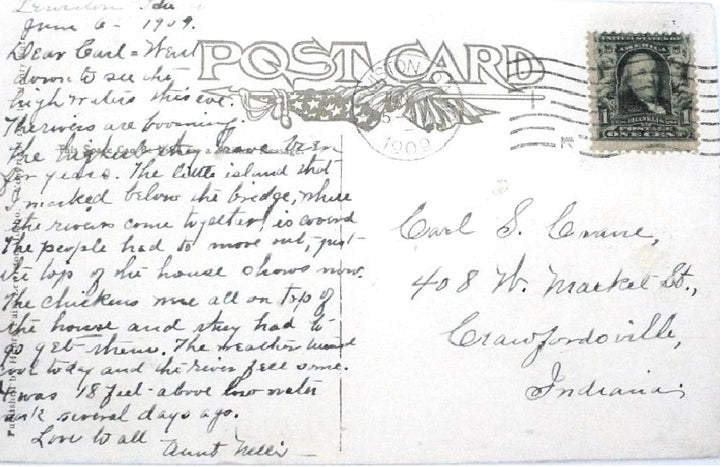 Lewiston Ida
June 6 - 1909.
Dear Carl = Went
down to see the
high waters this eve.
The rivers are booming.
The highest they have been
for years. The little island that
I marked below the bridge, where
the rivers come together! is coverd
The people had to move out, just
the top of the house shows now.
The chickens were all on top of
the house and they had to
go get them. The weather
cool today and the river fell some.
It was 18 feet above low water
mark several days ago.
Love to all
Aunt Nelli
POST CARD
This Space
Published by
1909
UNITED STATES OF AMERICA
FRANKLIN
1 POSTAGE 1
ONE CENT
Carl S. Crane,
408 W. Market St.,
Crawfordsville,
Indiana.